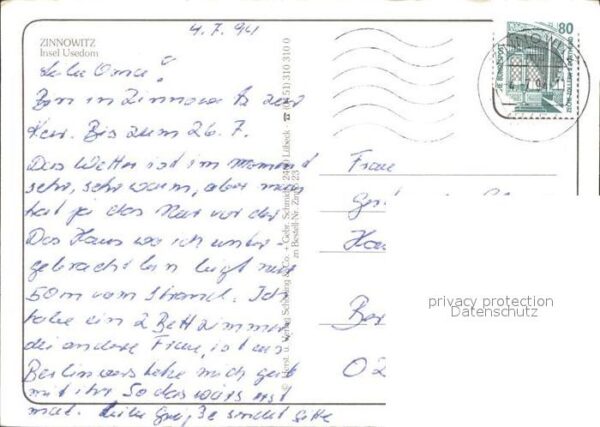 4.7.94
ZINNOWITZ
Insel Usedom
80
DEUTSCHE BUNDESPOST
ZECHE ZOLLERN II DORTMUND
Liebe Oma!
Bin in Zinnowitz zur
Kur. Bis zum 26.7.
Das Wetter ist im moment
sehr, sehr warm, aber man
hat ja das Meer vor der
Das Haus wo ich unter-
gebracht bin liegt nur
50m vom Strand. Ich
habe ein 2 Bettzimmer
die andere Frau, ist aus
Berlin verstehe mich gut
mit ihr So das wärs erst
mal.
© Horst. u. Verlag Schöning & Co. + Gebr. Schmidt, 2400 Lübeck ☎ (04 51) 310 310 0
zu Bestell-Nr. Zin 23
Frau
Ha
Be
O 2
privacy protection
Datenschutz